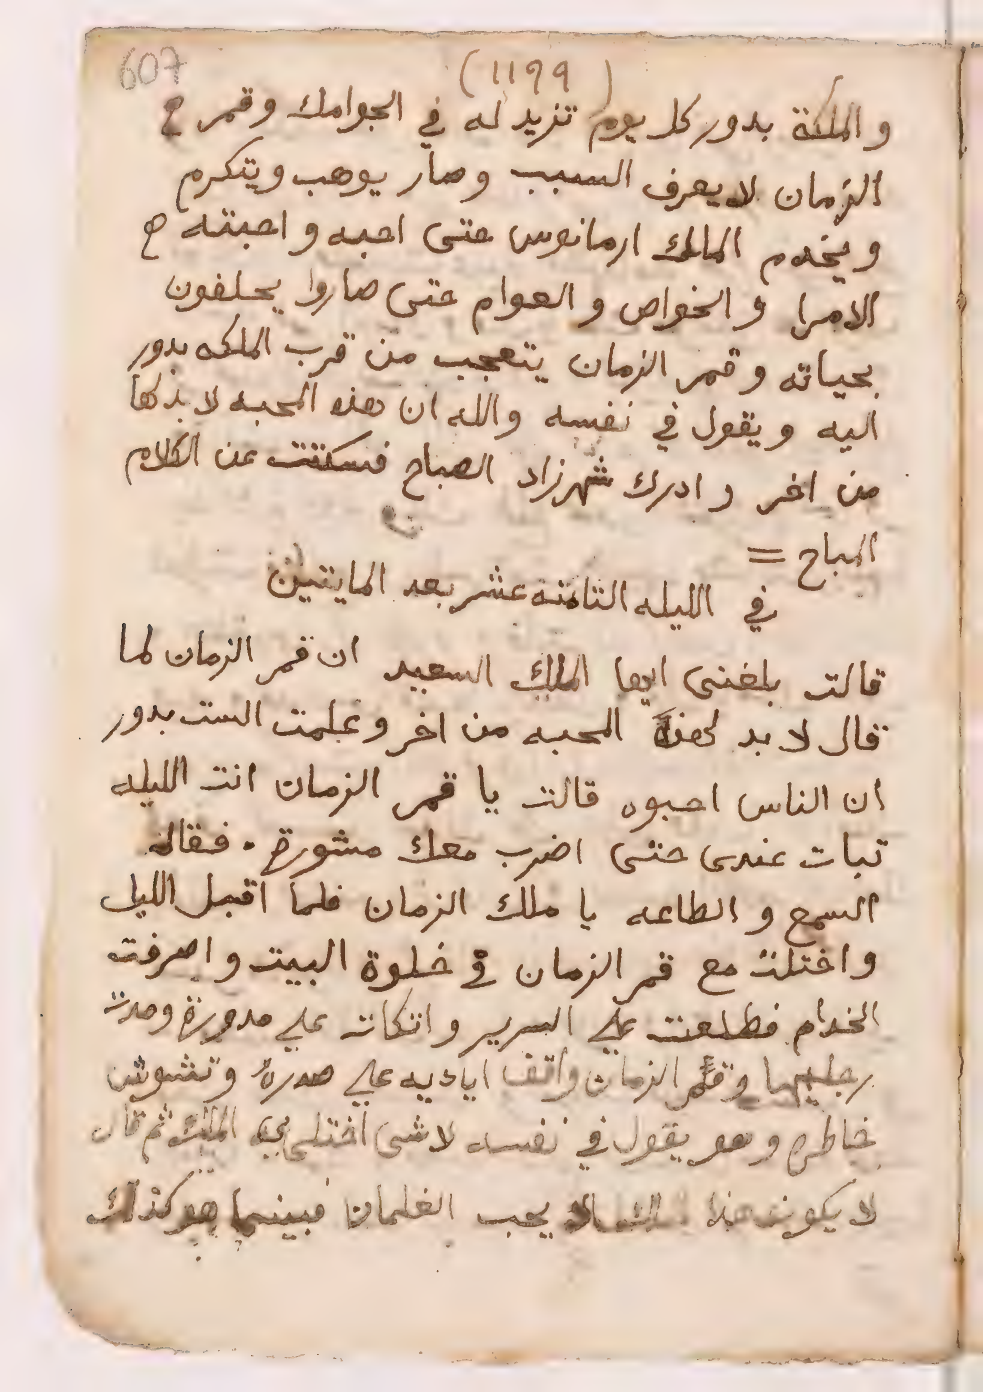 607
(1199)
والملكة بدور كل يوم تزيد له في الجوامك وقمر
الزمان لا يعرف السبب وصار يوهب ويتكرم
ويخدم الملك ارمانوس حتى احبه و احبته
الامرا و الخواص و العوام حتى صاروا يحلفون
بحياته و قمر الزمان يتعجب من قرب الملكه بدور
اليه و يقول في نفسه والله ان هذه المحبه لا بد لها
من اخر و ادرك شهرزاد الصباح فسكتت عن الكلام
المباح =
في الليله الثامنه عشر بعد المايتين
قالت بلغنى ايها الملك السعيد ان قمر الزمان لما
قال لا بد لهذه المحبه من اخر و علمت الست بدور
ان الناس احبوه قالت يا قمر الزمان انت الليله
تبات عندى حتى اضرب معك مشورة . فقال
السمع و الطاعه يا ملك الزمان فلما اقبل الليل
واختلت مع قمر الزمان في خلوة البيت و اصرفت
الخدام فطلعت على السرير و اتكات على مدورة ومدت
رجليها و قمر الزمان واقف اياديه على صدره و تشوش
خاطره و هو يقول في نفسه لاشى اختلى الملك ثم قال
لا يكون هذا يحب الغلمان فبينما هو كذلك